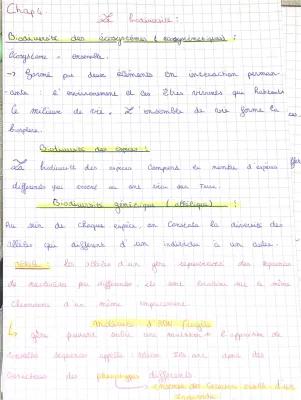 Chap 4
La biodiversité :
Biodiversité des écosystèmes (écosystémique) :
écosystème = ensemble
→ formé par deux éléments en interaction perman-
ente l'environnement et les êtres vivants qui habitent
ce milieux de vie. L'ensemble de vie forme la
biosphère.
Biodiversité des espèces :
La biodiversité des espèces comprens le nombre d'espèces
différentes qui existe sur Terre.
Biodiversité génétique (allélique) :
Au sein de chaque espèce, on constate la diversité des
allèles qui diffèrent d'un individu à un autre.
allèle : les allèles d'un gène
de nucléotides différentes ils sont sur le même
chromosome à un même emplacement
Molécule d'ADN fragile
↳ gène pouvant subir une mutation = l'apparition de
nouvelles séquences appelés allèles. Ils ont donc des
caractères des phénotypes différents
→ ensemble des caractères visible d'un
individu